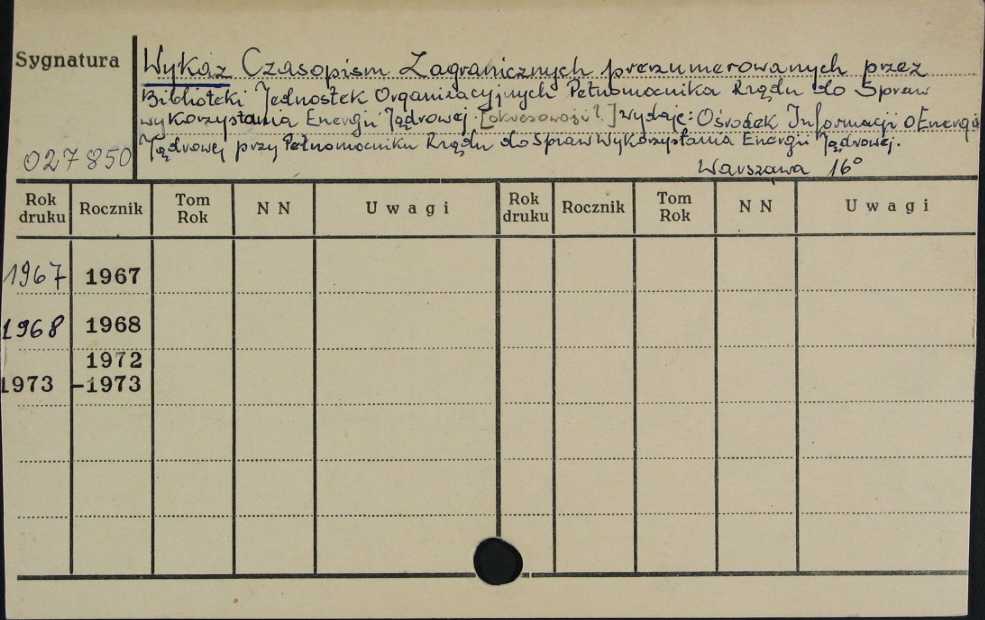 Sygnatura
Wykaz Czasopism Zagranicznych prenumerowanych przez
Biblioteki Jednostek Organizacyjnych Pełnomocnika Rządu do Spraw
wykorzystania Energii Jądrowej. [okresowość?] Wydaje: Ośrodek Informacji o Energii
Jądrowej przy Pełnomocniku Rządu do Spraw Wykorzystania Energii Jądrowej.
027850
Warszawa 16°
Rok druku Rocznik Tom Rok NN Uwagi Rok druku Rocznik Tom Rok NN Uwagi
1967 1967
1968 1968
1972
1973 -1973